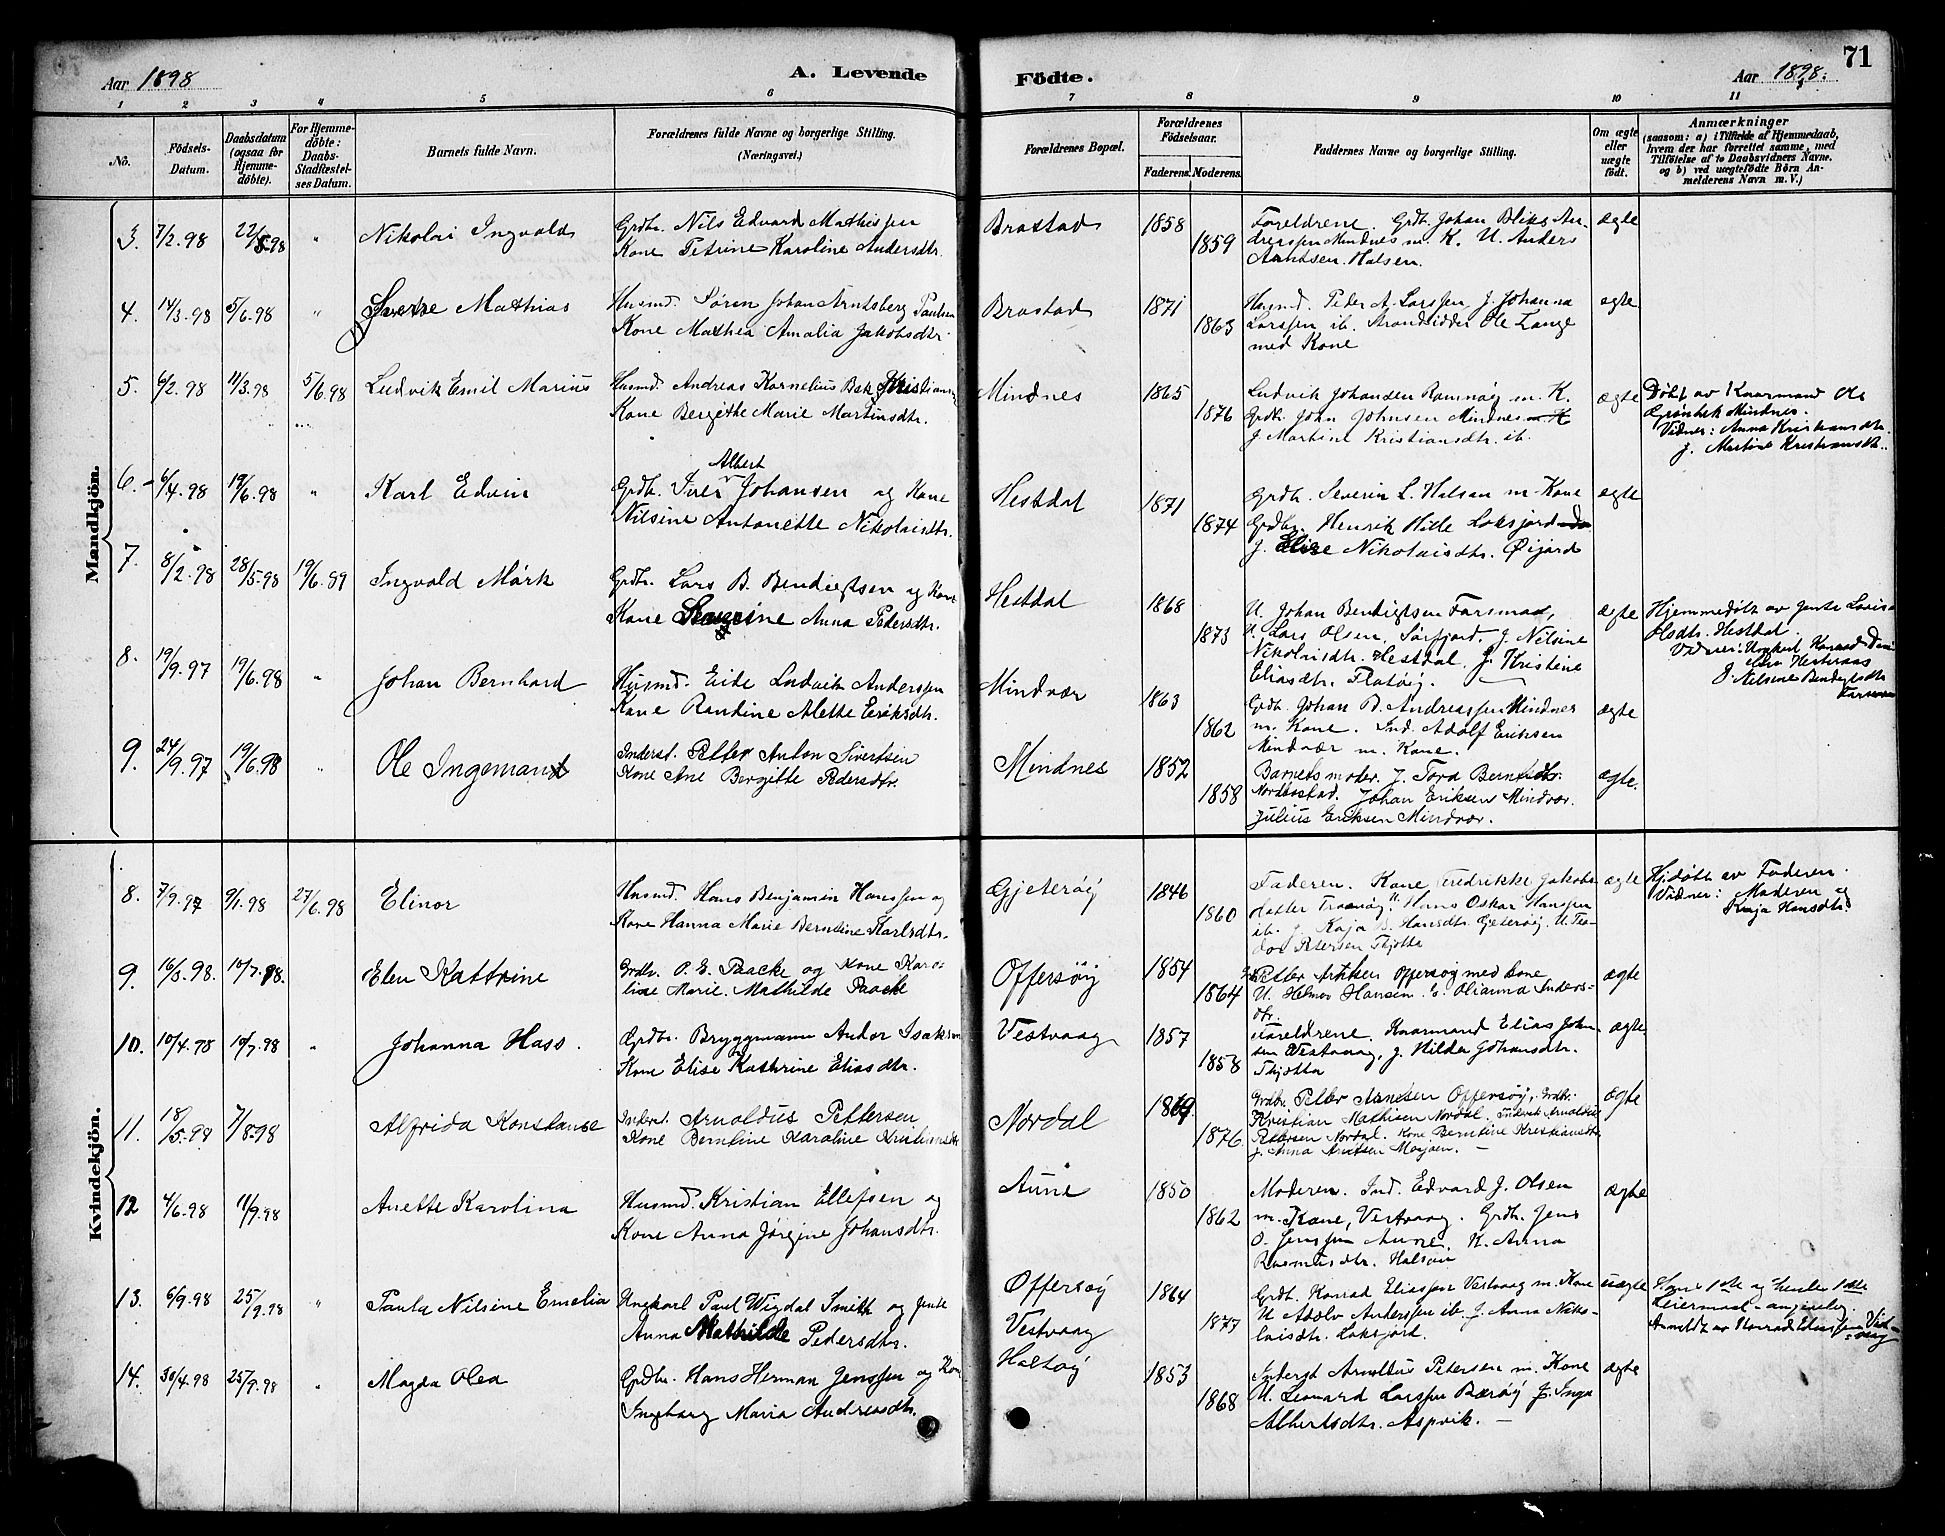 Aar 1898
A. Levende
Födte.
Aar 1898.
71
1 2 3 4 5 6 7 8 9 10 11
No.
Födsels-Datum.
Daabsdatum (ogsaa for Hjemme-döbte).
For Hjemme-döbte: Daabs-Stadfæstel-ses Datum.
Barnets fulde Navn.
Forældrenes fulde Navne og borgerlige Stilling.
(Næringsvei.)
Forældrenes Bopæl.
Forældrenes Födselsaar.
Faderens. Moderens.
Faddernes Navne og borgerlige Stilling.
Om ægte eller uægte födt.
Anmærkninger
(saasom: a) i Tilfælde af Hjemmedaab,
hvem der har forrettet samme, med
Tilföielse af to Daabsvidners Navne.
og b) ved uægtefödte Börn An-
melderens Navn m. V.)
Mandkjön.
3. 7/2.98 22/5.98 " Nikolai Ingvald
Grdbr. Nils Edvard Mathissen
Kone Petrine Karoline Andersdtr.
Brastad 1858 1859
Foreldrene. Grdbr. Johan Bliks An-
dressen Mindnes m. K. U. Anders
Arntsen Halsen.
ægte
4. 14/3.98 5/6.98 " Sverre Mathias
Husmd. Søren Johan Arntsberg Paulsen
Kone Mathea Amalia Jakobsdtr.
Brastad 1871 1863
Husmd. Peder A. Larssen, J. Johanna
Larssen ib. Strandsidder Ole Lange
med Kone
ægte
5. 6/2.98 11/3.98 5/6.98 Ludvik Emil Marius
Husmd. Andreas Kornelius Bek Kristiansen
Kone Bergitte Marie Martinsdtr.
Mindnes 1865 1876
Ludvik Johansen Ramnøy m. K.
Grdbr. John Johnsen Mindnes m. K
J. Martine Kristiansdtr. ib.
ægte
Døbt av Kaarmand Ole
Grønbek Mindnes.
Vidner: Anna Kristiansdtr.
J. Martine Kristiansdtr.
6. 6/4.98 19/6.98 " Karl Edvin
Albert
Grdbr. Iver Johansen og Kone
Nilsine Antonette Nikolaisdtr.
Hestdal 1871 1874
Grdbr. Severin L. Halsan m. Kone
Grdbr. Henrik Hille Loksjord
J. Elise Nikolaisdtr. Øijord
ægte
7. 8/2.98 28/5.98 19/6.99 Ingvald Mörk
Grdbr. Lars B. Bendigtsen og Kone
Kone Severine Anna Pedersdtr.
Hestdal 1868 1873
U. Johan Bendigtsen Farsmad,
U. Lars Olsen, Sørfjord. J. Nilsine
Nikolaisdtr. Hestdal. J. Kristine
Eliasdtr. Flatøig.
ægte
Hjemmedøbt av Jente Lovisa
Olsdtr. Hestdal.
Vidner: Ungkarl Konrad
J. Nilsine Bendigtsdtr
8. 19/9.97 19/6.98 " Johan Bernhard
Husmd. Eide Ludvik Anderssen
Kone Randine Alette Eriksdtr.
Mindvær 1863 1862
Grdb. Johan B. Andreassen Mindnes
m. Kone. Ind. Adolf Eriksen
Mindvær m. Kone.
ægte
9. 24/9.97 19/6.98 " Ole Ingemann
Inderst. Petter Anton Sivertsen
Kone Ane Bergitte Pedersdtr.
Mindnes 1852 1858
Barnets moder. J. Tora Berntsdtr.
Nordbostad. Johan Eriksen Mindvær.
Julius Eriksen Mindvær.
ægte.
Kvindekjön.
8. 7/9.97 9/1.98 27/6.98 Elinor
Husmd. Hans Benjamin Hanssen og
Kone Hanna Marie Berntine Karlsdtr.
Gjeterøy 1846 1860
Faderen. Kone Fredrikke Jakobs-
datter Tranøy. U. Hans Oskar Hanssen
ib. J. Kaja B. Hansdtr. Gjeterøy. U. Teo-
dor Petersen Tjøtta
ægte
Hjdøbt av Faderen.
Vidner: Moderen og
Kaja Hansdtr.
9. 16/3.98. 10/7.98. Elen Kattrine
Grdbr. P. E. Paacke og Kone Karo-
line Marie Mathilde Paacke
Offersøy 1854 1864
Petter Arntsen Offersøy med Kone
U. Helmer Hansen. J. Olianna Anders-
dtr.
ægte
10. 10/4.98 10/7.98 " Johanna Hass.
Grdbr. Bryggmann Andor Isaksen
Kone Elise Kathrine Eliasdtr.
Vestvaag 1857 1858
Foreldrene. Kaarmand Elias John-
sen Vestvaag, J. Hilda Johansdtr.
Tjøtta
ægte
11. 18/5.98 7/8.98 Alfrida Konstanse
Inderst. Arnoldus Pettersen
Kone Berntine Karoline Kristiansdtr
Nordal 1869 1876
Grdbr. Petter Arntsen Offersøy, Grdbr.
Kristian Mathisen Nordal. Arnoldus
Pettersen Nordal. Kone Berntine Kristiansdtr
J. Anna Arntsen
ægte
12 4/6.98 11/9.98 Anette Karolina
Husmd. Kristian Ellefsen og
Kone Anna Jørgine Johansdtr.
Aune 1850 1862
Moderen. Ind. Edvard J. Olsen
m. Kone, Vestvaag. Grdbr. Jens
O. Jenssen Aune. K. Anna
Rasmusdtr. Halsan
ægte
13. 6/9.98 25/9.98 " Paula Nilsine Emelia
Ungkarl Paul Wigdal Smith og Jente
Anna Mathilde Pedersdtr.
Offersøy
Vestvaag
1864 1877
Grdb. Konrad Eliassen Vestvaag m. Kone
U Adolv Anderssen ib. J. Anna Niko-
laisdtr. Loksjord.
uægte
Hans 1ste og hendes 1ste
Leiermaal
Anmeldt av Konrad Eliassen Vest-
vaag
14. 30/4.98 25/9.98 " Magda Olea
Grdbr. Hans Herman Jenssen og Kone
Ingeborg Maria Andreasdtr.
Haltøy 1853 1868
Inderst Arnoldus Petersen m. Kone
U. Leonard Larssen Bærøy J. Inga
Albertsdtr. Aspvik.
ægte